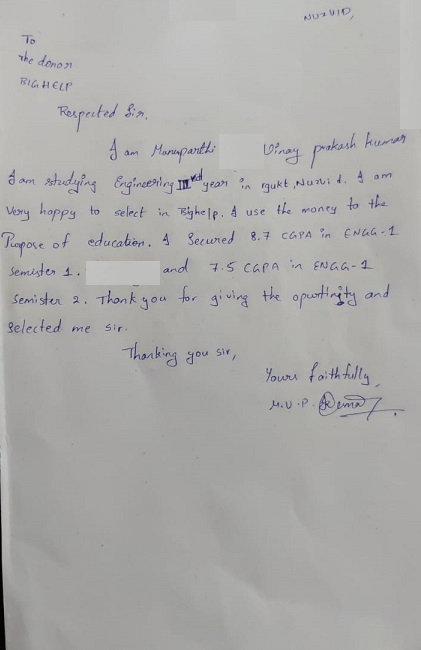 NUZVID,
To
the donor
BIGHELP
Respected Sir,
I am Manuparthi Vinay prakash kumar
I am studying Engineering IIIrd year in rgukt, Nuzvid. I am
Very happy to select in Bighelp. I use the money to the
Puopose of education. I Secured 8.7 CGPA in ENGG-1
Semister 1. and 7.5 CGPA in ENGG-1
Semister 2. Thank you for giving the opurtinity and
Selected me sir.
Thanking you sir,
Yours faithfully,
M.V.P.